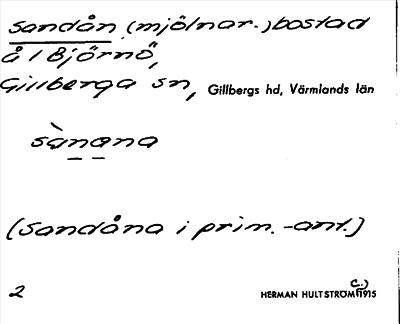 Sandån (mjölnar-)bostad
å / Björnö,
Gillberga sn, Gillbergs hd, Värmlands län
sànana
(Sandåna i prim.-ant.)
2 HERMAN HULTSTRÖM (c.) 1915